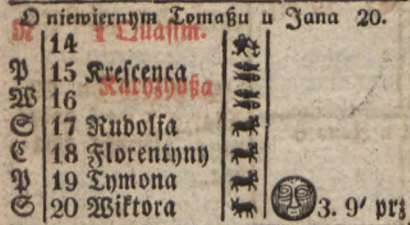 O niewiernym Tomaßu u Jana 20.
N 14 1 Quasim.
P 15 Krescenca
W 16
S 17 Rudolfa
C 18 Florentyny
P 19 Tymona
S 20 Wiktora 3. 9' prz